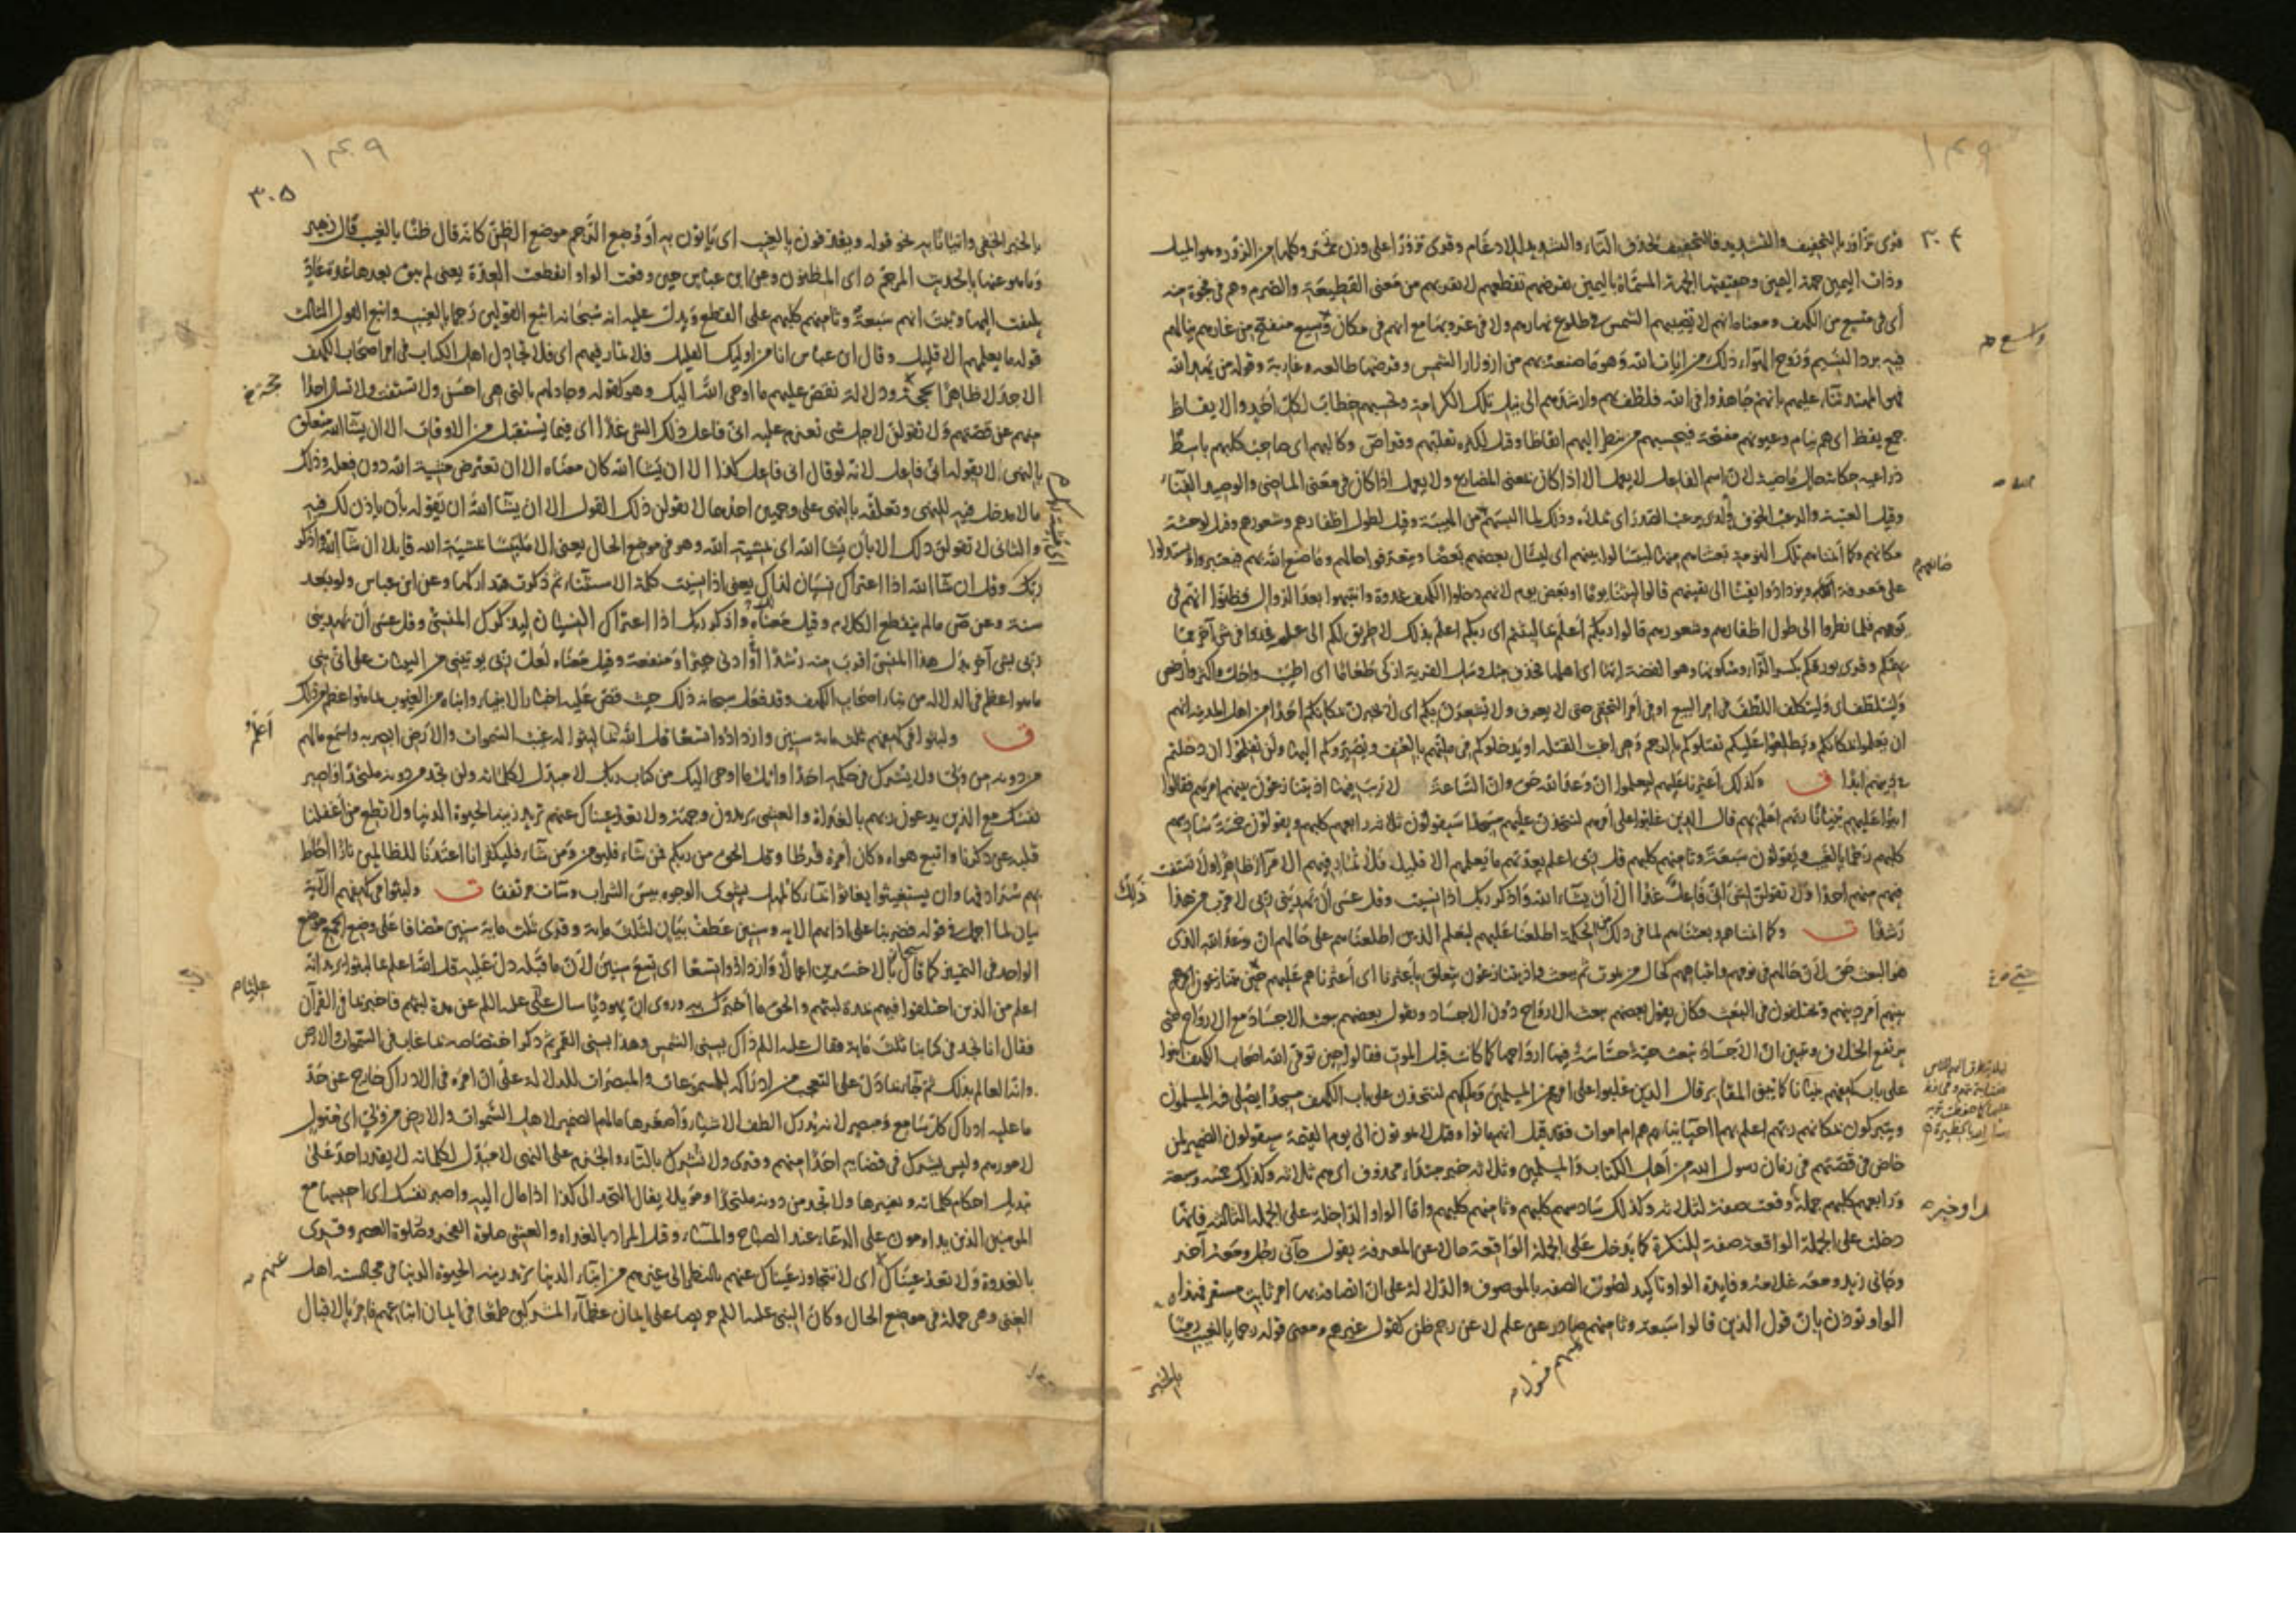 ٣٠٤
قرئ تزاور بالتخفيف والتشديد فالتخفيف لحذف التاء والتشديد للادغام وقرئ تزورّ على وزن تحمرّ وكلها من الزور وهو الميل
وذات اليمين جهة اليمين وحقيقتها الجهة المسماة باليمين تقرضهم تقطعهم لا تقربهم من معنى القطيعة والصرم وهم في فجوة منه
أي في متسع من الكهف ومعناه انهم لا تصيبهم الشمس في طلوع نهارهم ولا في غروبها مع انهم في مكان واسع منفتح من غارهم ينالهم
فيه برد النسيم وروح الهواء ذلك من ايات الله وهو ما صنعه بهم من ازورار الشمس وقرضها طالعه وغاربة وقوله من يهد الله
فهو المهتد ثناء عليهم بانهم جاهدوا في الله فلطف بهم وارشدهم الى نيل تلك الكرامة وتحسبهم خطاب لكل احد والايقاظ
جمع يقظ اي هم نيام وعيونهم مفتحة فيحسبهم من ينظر اليهم ايقاظا وقيل لكثرة تقلبهم وقراض وكالبهم اي صاحب كلبهم باسط
ذراعيه حكاية حال ماضية لان اسم الفاعل لا يعمل الا اذا كان بمعنى المضارع ولا يعمل اذا كان في معنى الماضي والوصيد الفناء
وقيل العتبة والرعب الخوف الذي يرعب الصدر اي يملاه وذلك لما البسهم من الهيبة وقيل لطول اظفارهم وشعورهم وقيل لوحشة
مكانهم وكما أنمناهم تلك النومة بعثناهم ليتسالوا بينهم اي ليسال بعضهم بعضا ويتعرفوا حالهم وما صنع الله بهم فيعتبروا ويستدلوا
على قدرة الله ويزدادوا يقينا الى يقينهم قالوا لبثنا يوما او بعض يوم لانهم دخلوا الكهف غدوة وانتبهوا بعد الزوال فظنوا انهم في
يومهم فلما نظروا الى طول اظفارهم وشعورهم قالوا ربكم أعلم بما لبثتم اي ربكم اعلم بذلك لا طريق لكم الى علمه فخذوا في شيء آخر مما
يهمكم وقرئ بورقكم بكسر الراء وسكونها وهو الفضة ايها اي اهلها فحذف مثل وسل القرية ازكى طعاما اي اطيب واحل واكثر وارخص
وليتلطف اي وليتكلف اللطف في امر البيع او في أمر التخفي حتى لا يعرف ولا يشعرن بكم اي لا يخبرن بمكانكم احدا من اهل المدينة انهم
ان يعلموا بمكانكم ويطلعوا عليكم يقتلوكم بالرجم وهي اخبث القتلة او يدخلوكم في ملتهم بالعنف ويصيروكم اليها ولن تفلحوا ان دخلتم
في دينهم ابدا ق وكذلك أعثرنا عليهم ليعلموا ان وعد الله حق وان الساعة لا ريب فيها اذ يتنازعون بينهم امرهم فقالوا
ابنوا عليهم بنيانا ربهم اعلم بهم قال الذين غلبوا على أمرهم لنتخذن عليهم مسجدا سيقولون ثلاثة رابعهم كلبهم ويقولون خمسة سادسهم
كلبهم رجما بالغيب ويقولون سبعة وثامنهم كلبهم قل ربي اعلم بعدتهم ما يعلمهم الا قليل فلا تمار فيهم الا مرآء ظاهرا ولا تستفت
فيهم منهم احدا ولا تقولن لشيء اني فاعل ذلك غدا الا أن يشاء الله واذكر ربك اذا نسيت وقل عسى أن يهديني ربي لاقرب من هذا
رشدا ت وكما انمناهم وبعثناهم لما في ذلك من الحكمة اطلعنا عليهم ليعلم الذين اطلعناهم على حالهم ان وعد الله الذي
هو البعث حق لان حالهم في نومهم وانتباههم كحال من يموت ثم يبعث واذ يتنازعون يتعلق بأعثرنا اي أعثرناهم عليهم حين يتنازعون امرهم
بينهم أمر دينهم ويختلفون في البعث فكان يقول بعضهم يبعث الارواح دون الاجساد ويقول بعضهم يبعث الاجساد مع الارواح حتى
يرتفع الخلاف ويتبين ان الاجساد تبعث حية حساسة فيها ارواحها كما كانت قبل الموت فقالوا حين توفى الله اصحاب الكهف ابنوا
على باب كهفهم بنيانا كما يبنى المقابر قال الذين غلبوا على امرهم من المسلمين وملكهم لنتخذن على باب الكهف مسجدا يصلي فيه المسلمون
ويتبركون بمكانهم ربهم اعلم بهم أأحياء نيام هم ام اموات فقد قيل انهم ماتوا وقيل لا يموتون الى يوم القيمة سيقولون الضمير لمن
خاض في قصتهم في زمان رسول الله من أهل الكتاب والمسلمين وثلاثة خبر مبتداء محذوف اي هم ثلاثة وكذلك خمسة وسبعة
ورابعهم كلبهم جملة وقعت صفة لثلاثة وكذلك سادسهم كلبهم وثامنهم كلبهم واما الواو الداخلة على الجملة الثالثة فانها
دخلت على الجملة الواقعة صفة للنكرة كما يدخل على الجملة الواقعة حالا عن المعرفة يقول جآني رجل ومعه آخر
وجاني زيد ومعه غلامه وفايدة الواو تاكيد لصوق الصفة بالموصوف والدلالة على ان اتصافه بها امر ثابت مستقر فهذه
الواو تؤذن بان قول الذين قالوا سبعة وثامنهم صادر عن علم لا عن رجم ظن كقول غيرهم ومعنى قوله رجما بالغيب رميا
بالخبر
٣٠٥
بالخبر الخفي واتيانا به نحو قوله ويقذفون بالغيب اي يأتون به أو وضع الرجم موضع الظن كانه قال ظنا بالغيب قال زهير
وما هو عنها بالحديث المرجم اي المظنون وعن ابن عباس حين وقعت الواو انقطعت العدة يعني لم يبق بعدها عدة عاد
يلتفت اليها وثبت انهم سبعة وثامنهم كلبهم على القطع ويدل عليه انه سبحانه اتبع القولين رجما بالغيب واتبع القول الثالث
قوله ما يعلمهم الا قليل وقال ابن عباس انا من اوليك القليل فلا تمار فيهم اي فلا تجادل اهل الكتاب في امر اصحاب الكهف
الا جدلا ظاهرا بحجة ودلالة تقص عليهم ما اوحى الله اليك وهو كقوله وجادلهم بالتي هي احسن ولا تستفت ولا تسال احدا
منهم عن قصتهم ولا تقولن لاجل شيء تعزم عليه اني فاعل ذلك الشيء غدا اي فيما يستقبل من الاوقات الا ان يشاء الله متعلق
بالنهي لا بقوله اني فاعل لانه لو قال اني فاعل كذا الا ان يشاء الله كان معناه الا ان تعترض مشية الله دون فعله وذلك
ما لا مدخل فيه للنهي وتعلقه بالنهي على وجهين احدهما لا تقولن ذلك القول الا ان يشآء الله ان تقوله بأن ياذن لك فيه
والثاني لا تقولن ذلك الا بأن يشاء الله اي بمشية الله وهو في موضع الحال يعني الا ملتبسا بمشية الله قايلا ان شآء الله واذكر
ربك وقل ان شاء الله اذا اعتراك نسيان لذلك يعني اذا نسيت كلمة الاستثناء ثم ذكرت فتداركها وعن ابن عباس ولو بعد
سنة وعن ص ما لم ينقطع الكلام وقيل معناه واذكر ربك اذا اعتراك النسيان ليذكرك المنسي وقل عسى أن يهديني
ربي بشيء آخر بدل هذا المنسي اقرب منه رشدا وادنى خيرا ومنفعة وقيل معناه لعل ربي يوتيني من البينات على اني نبي
ما هو اعظم في الدلالة من نباء اصحاب الكهف وقد فعل سبحانه ذلك حيث قص عليه اخبار الانبياء وانباه من الغيوب بما هو اعظم من ذلك
ق ولبثوا في كهفهم ثلث ماية سنين وازدادوا تسعا قل الله اعلم بما لبثوا له غيب السموات والارض ابصر به واسمع ما لهم
من دونه من ولي ولا يشرك في حكمه احدا واتل ما اوحي اليك من كتاب ربك لا مبدل لكلماته ولن تجد من دونه ملتحدا واصبر
نفسك مع الذين يدعون ربهم بالغداة والعشي يريدون وجهه ولا تعد عيناك عنهم تريد زينة الحيوة الدنيا ولا تطع من أغفلنا
قلبه عن ذكرنا واتبع هواه وكان أمره فرطا وقل الحق من ربكم فمن شاء فليومن ومن شاء فليكفر انا اعتدنا للظالمين نارا أحاط
بهم سرادقها وان يستغيثوا يغاثوا بماء كالمهل يشوي الوجوه بيس الشراب وسآءت مرتفقا ت ولبثوا في كهفهم الآية
بيان لما اجمل في قوله فضربنا على اذانهم الاية وسنين عطف بيان لثلث ماية وقرئ ثلث ماية سنين مضافا على وضع الجمع موضع
الواحد في التمييز كما قال بالاخسرين اعمالا وازدادوا تسعا اي تسع سنين لان ما قبله دل عليه قل الله اعلم بما لبثوا يريد انه
اعلم من الذين اختلفوا فيهم بمدة لبثهم والحق ما أخبرك به وروي ان يهوديا سال علي عليه السلم عن مدة لبثهم فاخبر بما في القرآن
فقال انا نجد في كتابنا ثلث ماية فقال عليه السلم ذاك بسني الشمس وهذا بسني القمر ثم ذكر اختصاصه بما غاب في السموات والارض
وانه العالم بذلك ثم جآء بما دل على التعجب من ادراكه للمسموعات والمبصرات للدلالة على ان امره في الادراك خارج عن حد
ما عليه ادراك كل سامع ومبصر لانه يدرك الطف الاشياء وأصغرها ما لهم الضمير لاهل السموات والارض من ولي اي متول
لامورهم وليس يشرك في قضائه احدا منهم وقرئ ولا تشرك بالتاء والجزم على النهي لا مبدل لكلماته لا يقدر احد على
تبديل احكام كلماته وتغييرها ولا تجد من دونه ملتحدا ومؤيلا يقال التحد الى كذا اذا مال اليه واصبر نفسك اي احبسها مع
المومنين الذين يداومون على الدعاء عند الصباح والمساء وقيل المراد بالغداة والعشي صلوة الفجر وصلوة العصر وقرئ
بالغدوة ولا تعد عيناك اي لا تتجاوز عيناك عنهم بالنظر الى غيرهم من ابناء الدنيا تريد زينة الحيوة الدنيا في مجالسة اهل
الغنى وهي جملة في موضع الحال وكان النبي عليه السلم حريصا على ايمان عظمآء المشركين طمعا في ايمان اتباعهم فامر بالاقبال